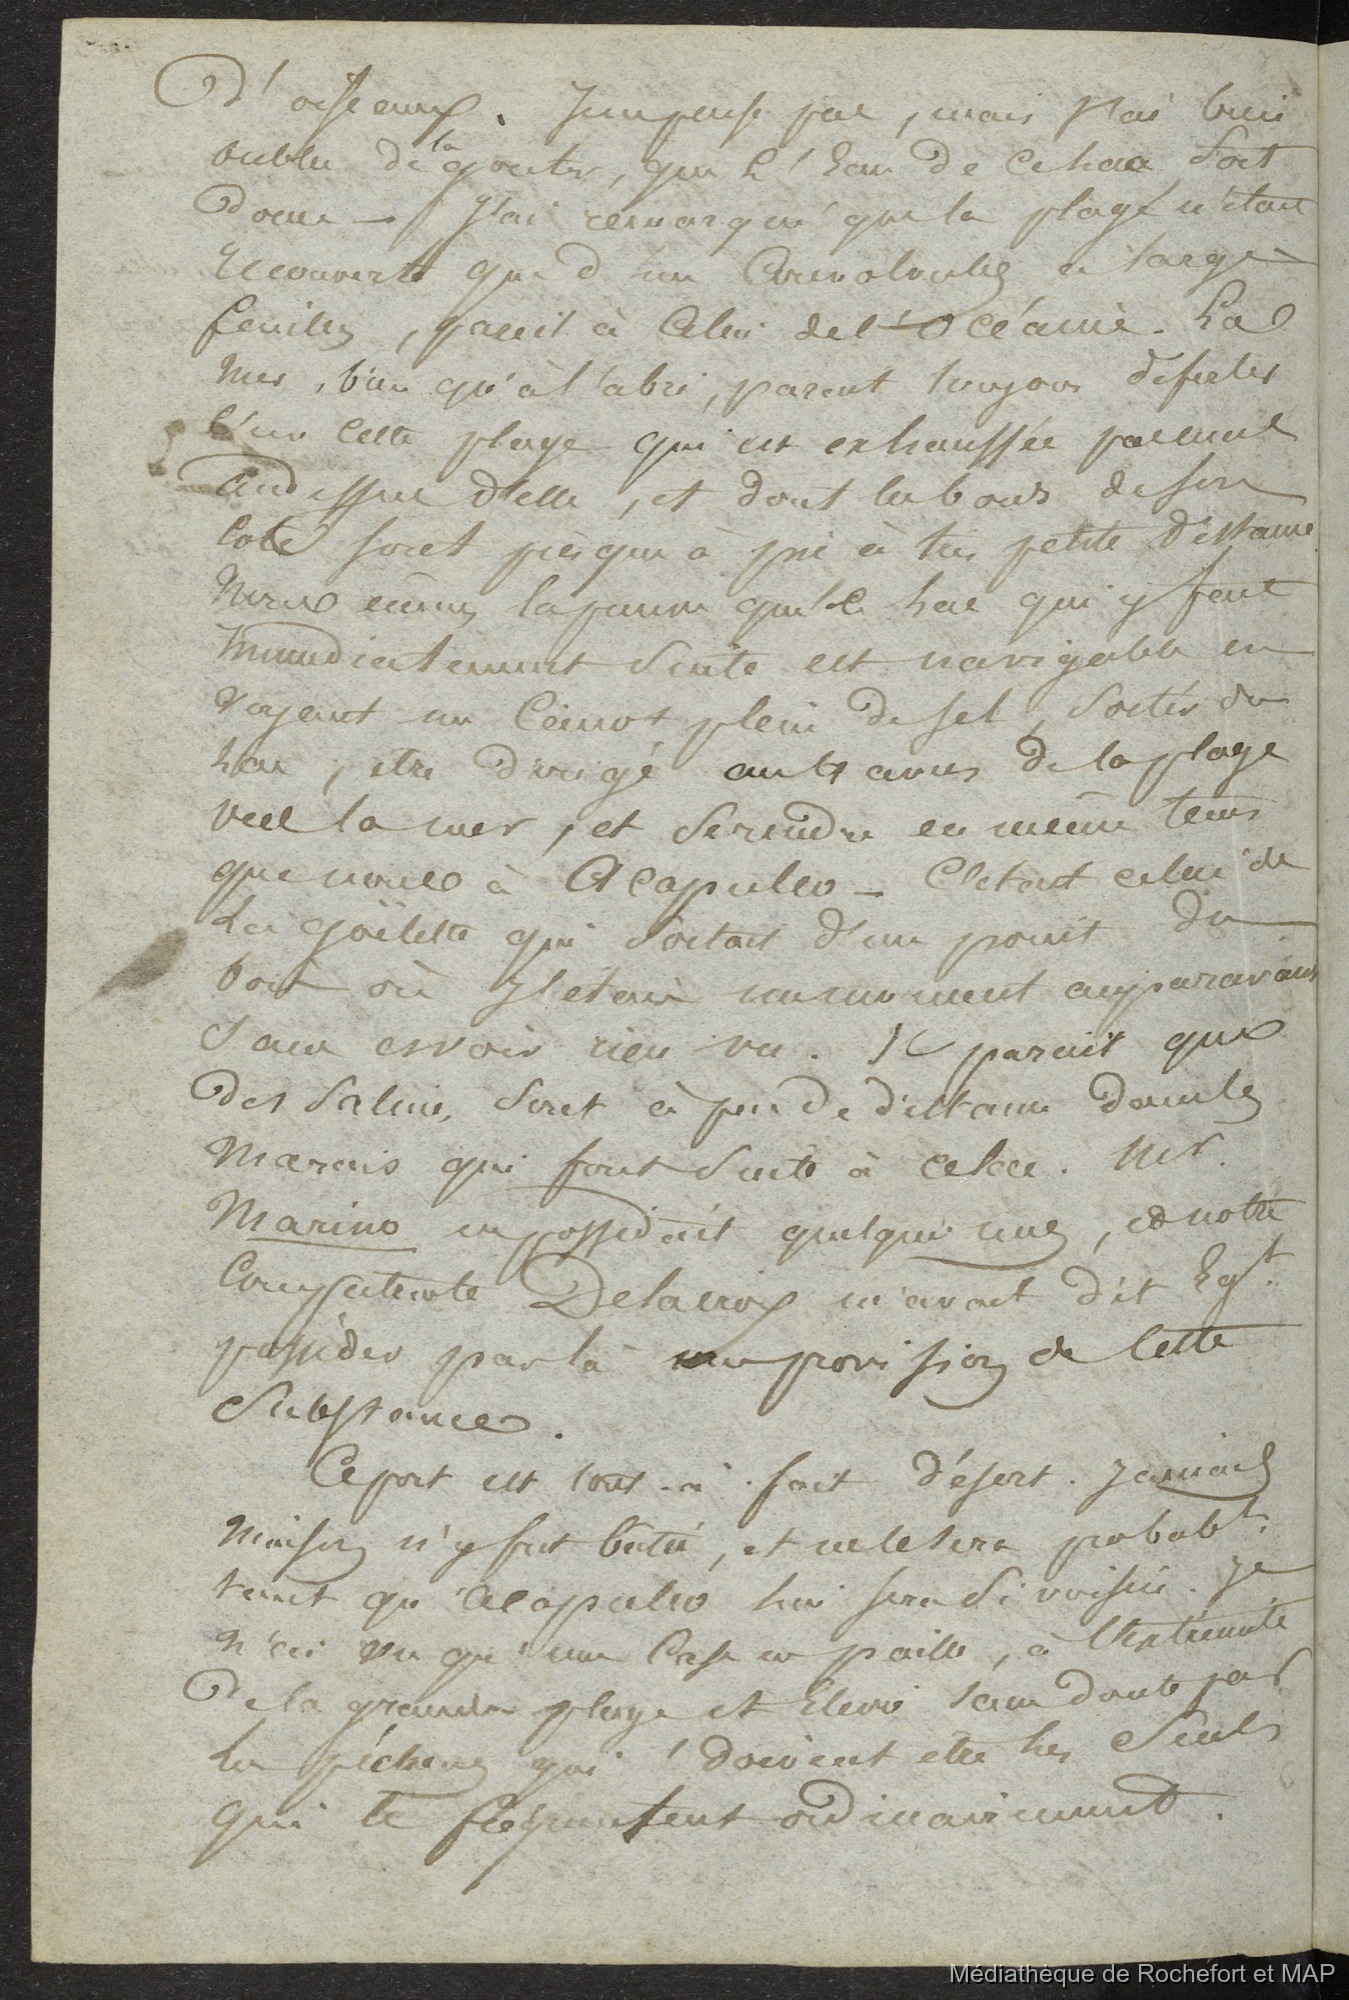 D'oiseaux. Je ne pense pas, mais j'ai bien
oublié de la gouter, que l'Eau de ce lac soit
douce — J'ai remarqué que la plage n'était
recouverte que d'un Convolvulus à large
feuilles, pareil à celui de l'Océanie. La
mer, bien qu'à l'abri, parait toujours déferler
sur cette plage qui est exhaussée
au dessus d'elle, et dont les bords de son
coté sont presque à pic à très petite distance
Nous eumes la preuve que le lac qui y fait
Immédiatement suite est navigable en
voyant un Canot plein de sel, sortir du
lac, etre dirigé au travers de la plage
vers la mer, et se rendre en même tems
que nous à Acapulco — C'etait celui de
La goëlette qui sortait d'un point du
bois où J'etais un moment auparavant
sans avoir rien vu. Il parait que
des salines sont à peu de distance dans les
Marais qui font suite à ce lac. Mr.
Marino en possédait quelques unes, et notre
Compatriote Delacroix m'avait dit Egt.
posséder par là une provision de cette
substance.
Ce port est tout-à-fait désert. Jamais
Maison n'y fut bâtie, et ne le sera probablt.
tant qu'Acapulco lui sera si voisin. Je
n'ai vu qu'une Case en paille, à l'extrémité
De la grande plage et Elevée sans doute par
les pécheurs qui doivent etre les seuls
qui le fréquentent ordinairement.
Médiathèque de Rochefort et MAP